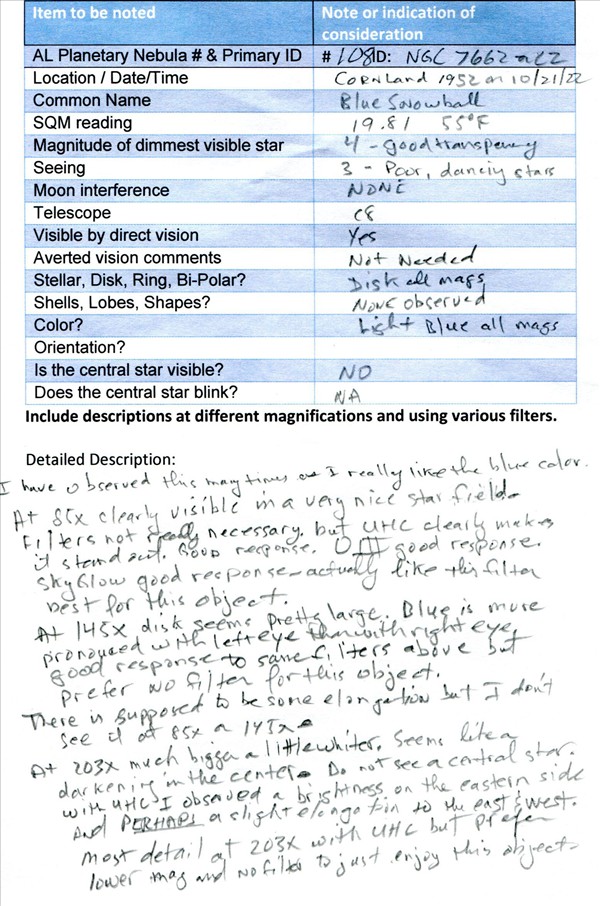 Item to be noted Note or indication of consideration
AL Planetary Nebula # & Primary ID #108 ID: NGC 7662
Location / Date/Time Cornland 1952 on 10/21/22
Common Name Blue Snowball
SQM reading 19.81 55°F
Magnitude of dimmest visible star 4 - good transpency
Seeing 3 - Poor, dancing stars
Moon interference NONE
Telescope C8
Visible by direct vision Yes
Averted vision comments Not Needed
Stellar, Disk, Ring, Bi-Polar? Disk all mags
Shells, Lobes, Shapes? None observed
Color? Light Blue all mags
Orientation?
Is the central star visible? NO
Does the central star blink? NA
Include descriptions at different magnifications and using various filters.
Detailed Description:
I have observed this many times as I really like the blue color.
At 85x clearly visible in a very nice star field.
Filters not really necessary, but UHC clearly makes
it stand out. Good response. OIII good response.
Skyglow good response - actually like this filter
best for this object.
At 145x disk seems pretty large. Blue is more
pronounced with left eye than with right eye,
good response to same filters above but
prefer no filter for this object.
There is supposed to be some elongation but I don't
see it at 85x or 145x.
At 203x much bigger a little whiter. Seems like a
darkening in the center. Do not see a central star.
with UHC I observed a brightness on the eastern side
And PERHAPS a slight elongation to the east & west.
most detail at 203x with UHC but prefer
lower mag and no filter to just enjoy this object.